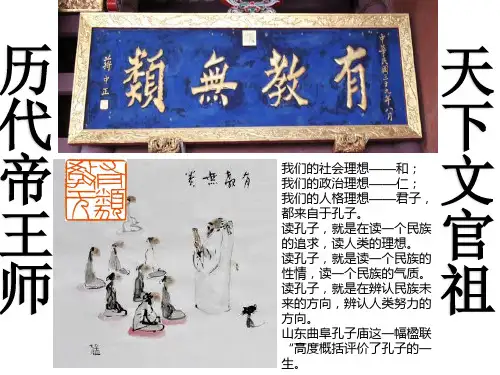 历代帝王师
天下文官祖
有教無類
蔣中正
有教無类
我们的社会理想——和；
我们的政治理想——仁；
我们的人格理想——君子，
都来自于孔子。
读孔子，就是在读一个民族
的追求，读人类的理想。
读孔子，就是读一个民族的
性情，读一个民族的气质。
读孔子，就是在辨认民族未
来的方向，辨认人类努力的
方向。
山东曲阜孔子庙这一幅楹联
“高度概括评价了孔子的一
生。